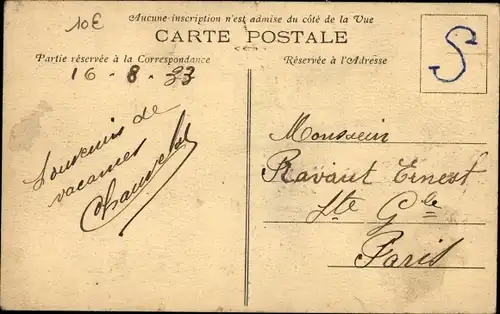 10€
Aucune inscription n'est admise du côté de la Vue
CARTE POSTALE
Partie réservée à la Correspondance
Réservée à l'Adresse
S
16 - 8 - 33
Souvenirs de
vacances
Monsieur
Ravaut Ernest
Ste Gle
Paris